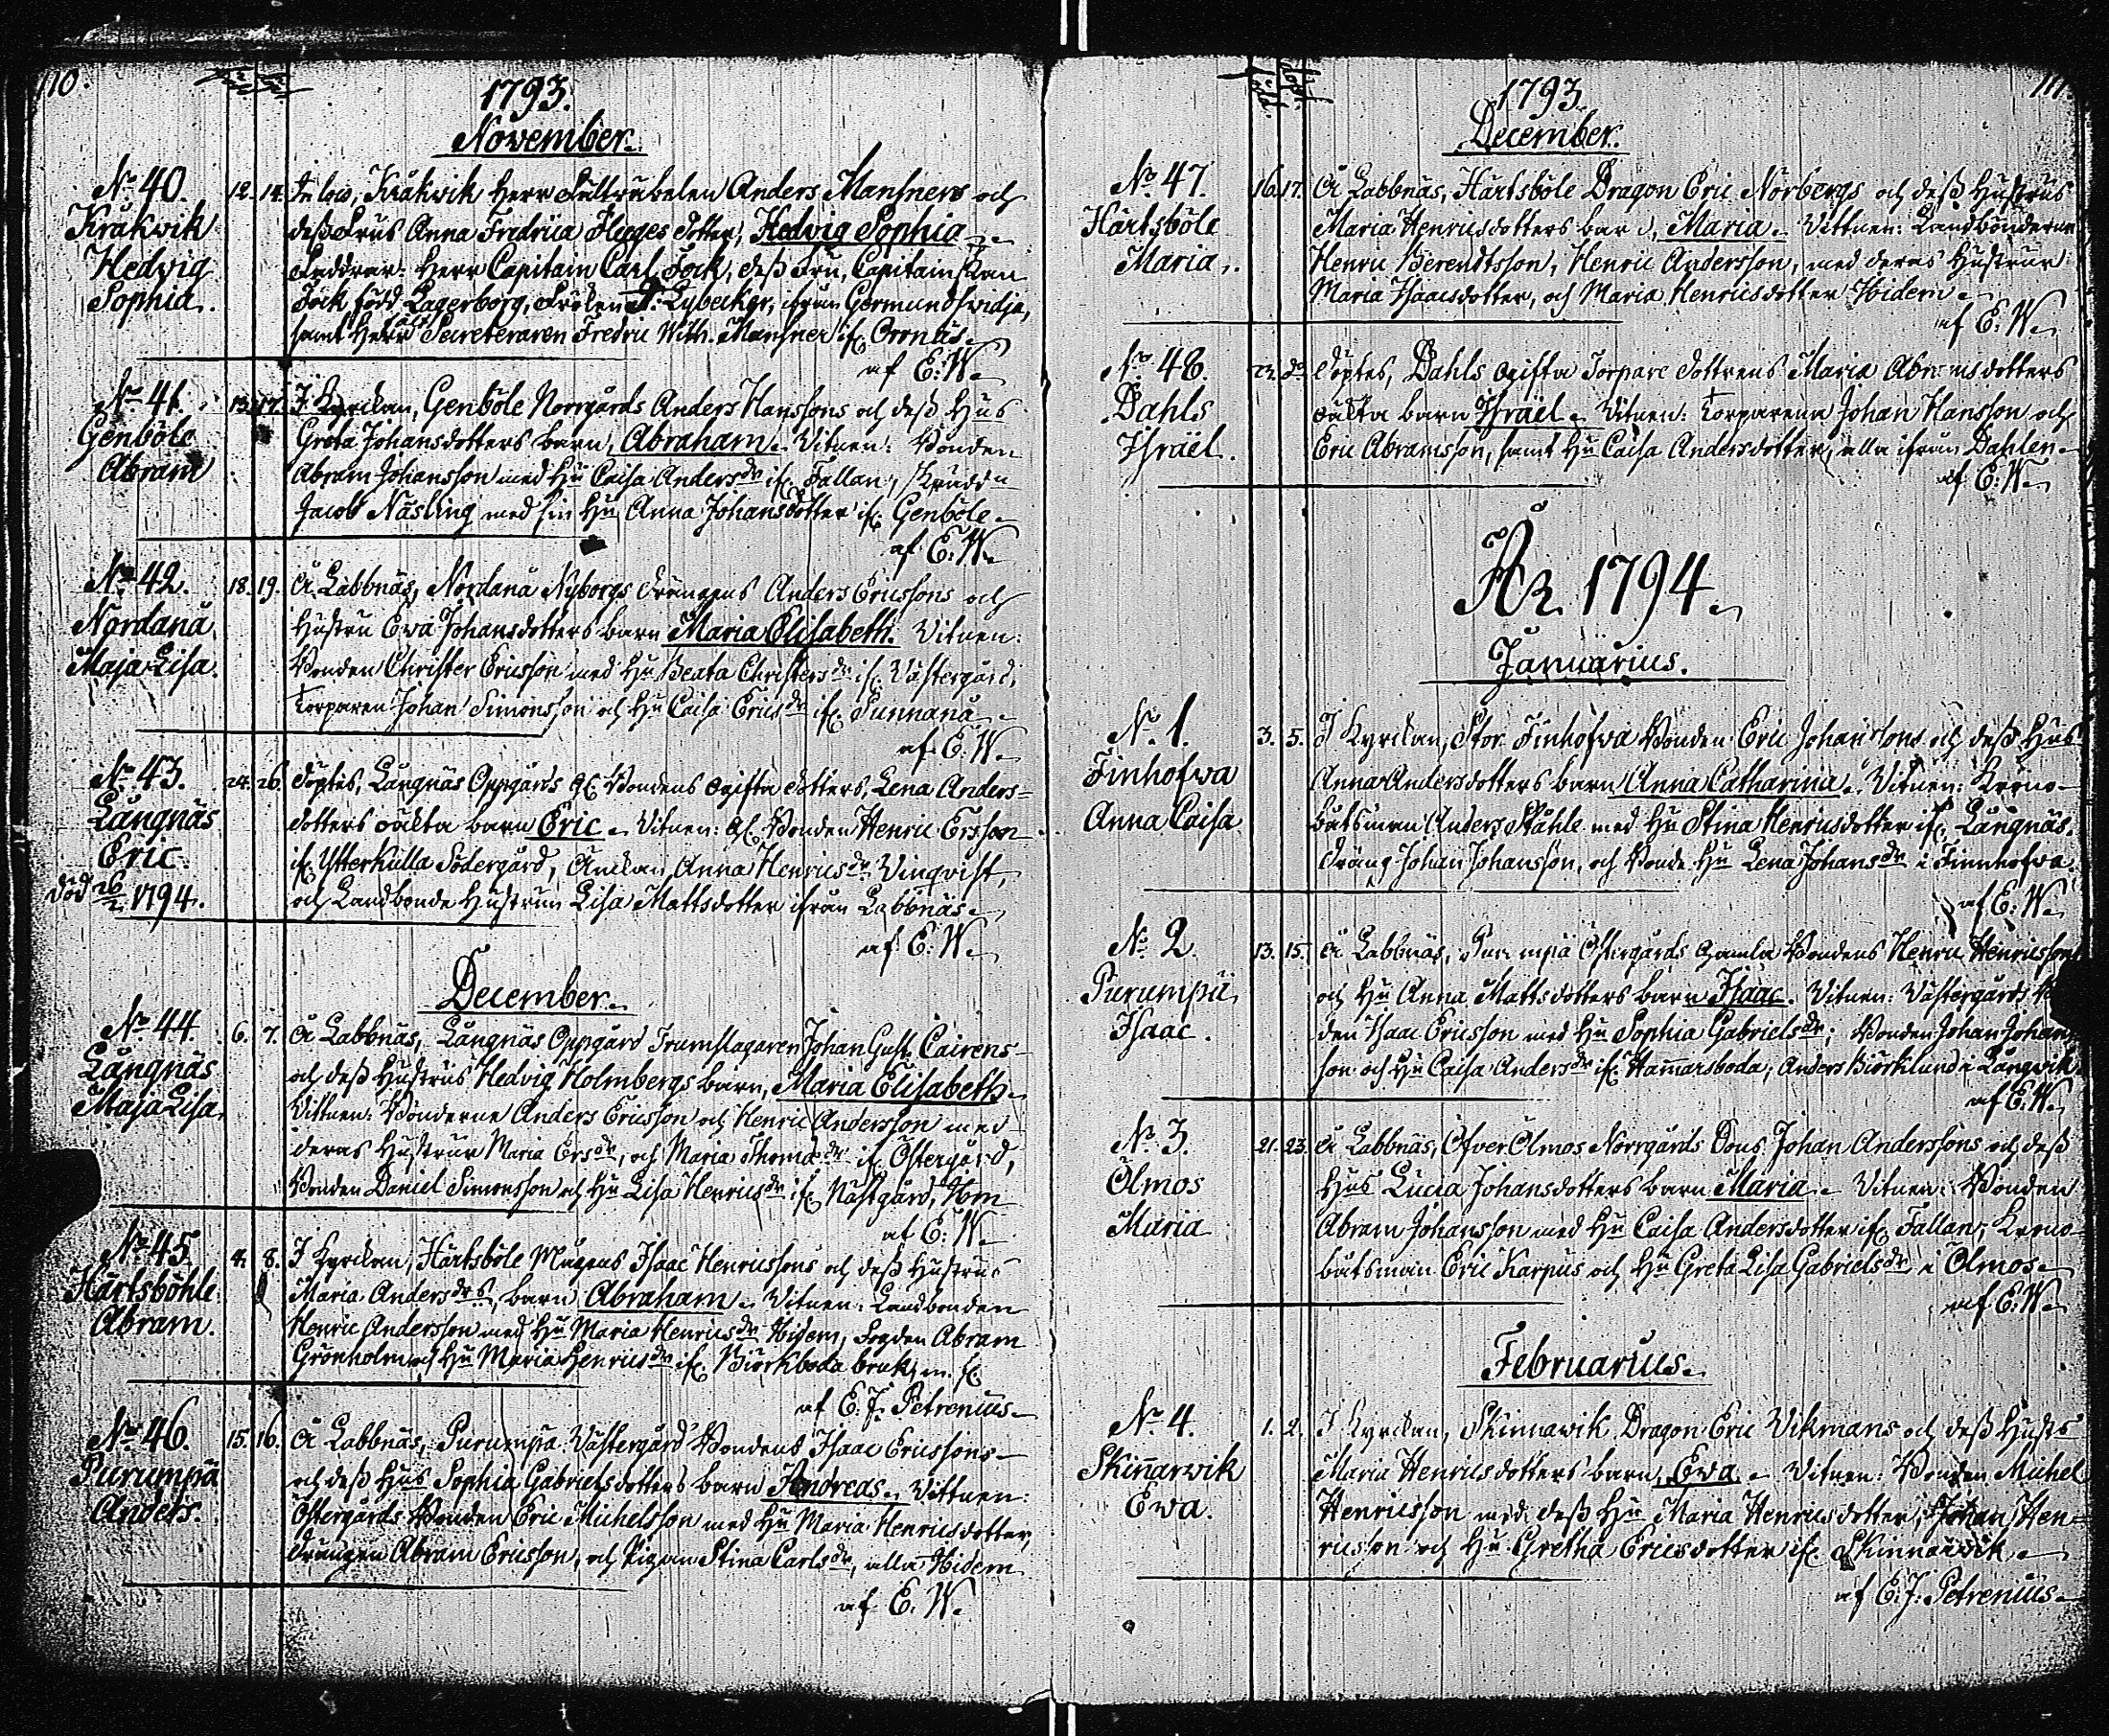 110.
1793.
November.
No 40.
Kråkwik
Hedvig
Sophia.
12. 14. In loco, Kråkwik Herr Anders Manßners och
deß Frus Anna Fredrica Hæges dotter, Hedvig Sophia
Faddrar: Herr Capitain Carl Fock, deß Fru, Capitainskan
Fock, född Lagerborg, Fröken Lybecker, ifrån Germundsvidja,
samt Herr Secreteraren Fredric Wilh. Manßner if. Oronäs.
af E: W.
No 41.
Genböle
Abram
13. 17. I Kyrckan, Genböle Norrgårds Anders Hanssons och deß Hus
Greta Johansdotters barn, Abraham. Vitnen: Bonden
Abram Johansson med Hu Caisa Andersdr if. Tallan,
Jacob Näsling med sin Hu Anna Johansdotter if. Genböle.
af E: W.
No 42.
Nordanå
Maja Lisa.
18. 19. Å Labbnäs, Nordanå Nyborgs Drängens Anders Ericssons och
Hustru Ewa Johansdotters barn Maria Elisabeth. Vitnen:
Bonden Christer Ericsson med Hu Beata Christersdr if. Västergård,
Torparen Johan Simonsson och Hu Caisa Ericsdr if. Sunnanå.
af E: W.
No 43.
Långnäs
Eric
död 26/2 1794.
24. 26. Döptes, Långnäs Oppgårds Bondens ogifta dotters, Lena Anders-
dotters oäkta barn Eric. Vitnen: Bonden Henric Ersson
if. Ytterkulla Södergård, Änckan Anna Henricsdr Vinqvist,
och Landbonde Hustrun Lisa Mattsdotter ifrån Labbnäs.
af E: W.
December.
No 44.
Långnäs
Maja Lisa.
6. 7. Å Labbnäs, Långnäs Oppgård Trumslagaren Johan Gust. Cairens
och deß Hustrus Hedvig Holmbergs barn, Maria Elisabeth.
Vittnen: Bönderne Anders Ericsson och Henric Andersson med
deras Hustrur Maria Ersdr, och Maria Thomædr if. Östergård,
Bonden Daniel Simonsson och Hu Lisa Henricsdr if. Västgård,
af E: W.
No 45.
Härtsböhle
Abram.
4. 8. I Kyrckan, Härtsböle Mågens Isaac Henricssons och deß Hustrus
Maria Andersdrs, barn Abraham. Vitnen: Landbonden
Henric Andersson med Hu Maria Henricsdr Ibidem, Fogden Abram
Grönholm och Hu Maria Henricsdr if. Björkboda bruk, m. fl.
af E. J. Petrenius.
No 46.
Purumpä
Anders.
15. 16. Å Labbnäs, Purumpä Västergård Bondens Isaac Ericssons
och deß Hus Sophia Gabrielsdotters barn Andreas. Vittnen:
Östergårds Bonden Eric Michelsson med Hu Maria Henricsdotter,
Drängen Abram Ericsson, och Pigan Stina Carlsdr, alla Ibidem
af E. W.
111.
född. döpt.
1793.
December.
No 47.
Härtsböle
Maria.
16. 17. Å Labbnäs, Härtsböle Dragon Eric Norbergs och deß Hustrus
Maria Henricsdotters barn, Maria. Vittnen: Landbönderne
Henric Berendtsson, Henric Andersson, med deras Hustrur
Maria Isaacsdotter, och Maria Henricsdotter Ibidem.
af E. W.
No 48.
Dahls
Israël.
22. do Döptes, Dahls ogifta Torpare dottrens Maria Abramsdotters
oäkta barn Israël. Vitnen: Torparena Johan Hansson och
Eric Abramsson, samt Hu Caisa Andersdotter, alla ifrån Dahlen.
af E: W.
År 1794.
Januarius.
No 1.
Finhofwa
Anna Caisa
3. 5. I Kyrckan, Stor Finhofwa Bonden Eric Johanssons och deß Hus
Anna Andersdotters barn Anna Catharina. Vitnen: Krono-
båtsman Anders Ståhle med Hu Stina Henricsdotter if. Långnäs,
Dräng Johan Johansson, och Bonde Hu Lena Johansdr i Finnhofwa
af E: W.
No 2.
Purumpä
Isaac.
13. 15. Å Labbnäs, Purumpä Östergårds Gamla Bondens Henric Henricsson
och Hu Anna Mattsdotters barn Isaac. Vitnen: Västergårds
den Isaac Ericsson med Hu Sophia Gabrielsdr; Bonden Johan Johans
son och Hu Caisa Andersdr if. Hammarsboda, Anders Biörklund i Långvik
af E: W.
No 3.
Ölmos
Maria
21. 23. Å Labbnäs, Öfver Ölmos Norrgårds Bons. Johan Anderssons och deß
Hus Lucia Johansdotters barn Maria. Vitnen: Bonden
Abram Johansson med Hu Caisa Andersdotter if. Tallan, Krono-
båtsman Eric Karpus och Hu Greta Lisa Gabrielsdr i Ölmos.
af E: W.
Februarius.
No 4.
Skinnarwik
Ewa.
1. 2. I Kyrckan, Skinnarwik Dragon Eric Vikmans och deß Husts
Maria Henricsdotters barn, Ewa. Vitnen: Bonden Michel
Henricsson med deß Hu Maria Henricsdotter, Johan Hen=
ricsson och Hu Gretha Ericsdotter if. Skinnarwik.
af E. J: Petrenius.